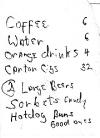 Coffee 6
Water 6
Orange drinks 4
Carton Cigs 32
2 Large Beers
Sorbets
Hotdog Buns
Good ones